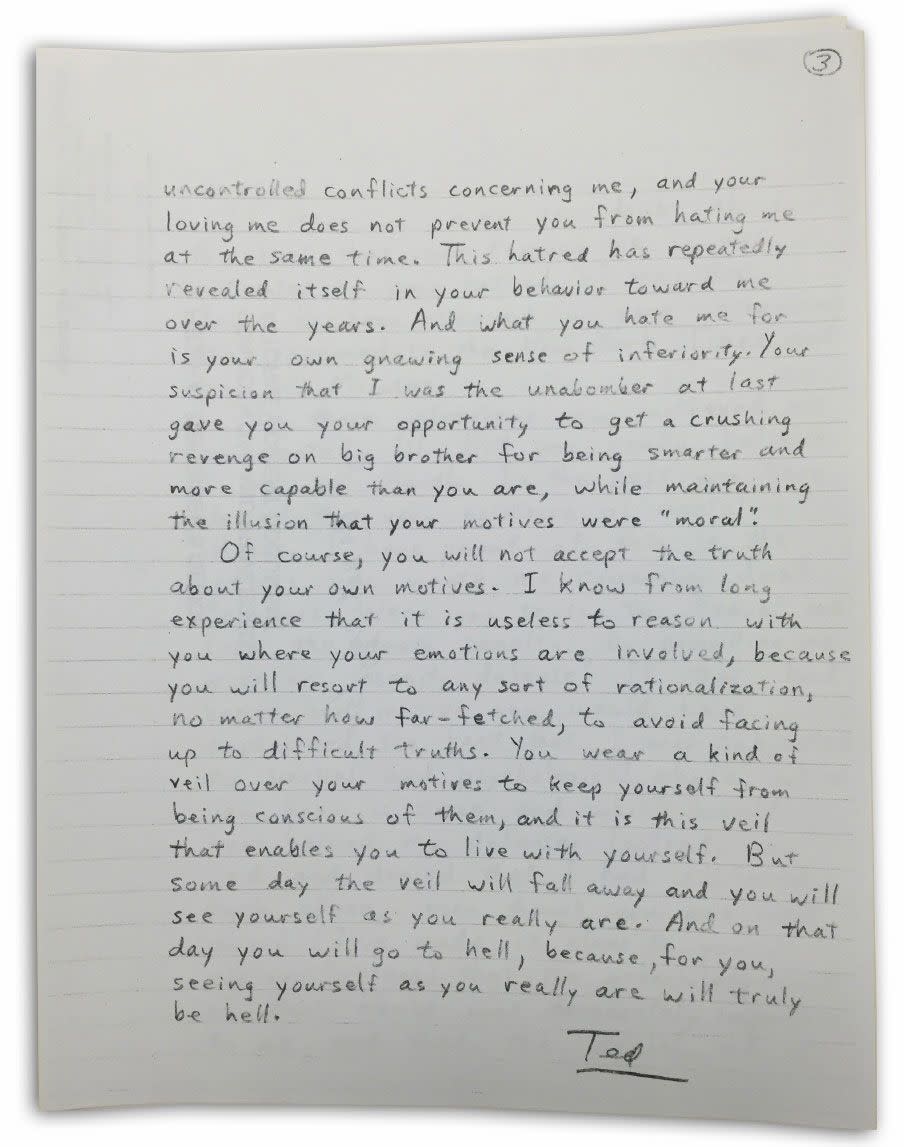 3
uncontrolled conflicts concerning me, and your
loving me does not prevent you from hating me
at the same time. This hatred has repeatedly
revealed itself in your behavior toward me
over the years. And what you hate me for
is your own gnawing sense of inferiority. Your
suspicion that I was the unabomber at last
gave you your opportunity to get a crushing
revenge on big brother for being smarter and
more capable than you are, while maintaining
the illusion that your motives were "moral".
Of course, you will not accept the truth
about your own motives. I know from long
experience that it is useless to reason with
you where your emotions are involved, because
you will resort to any sort of rationalization,
no matter how far-fetched, to avoid facing
up to difficult truths. You wear a kind of
veil over your motives to keep yourself from
being conscious of them, and it is this veil
that enables you to live with yourself. But
some day the veil will fall away and you will
see yourself as you really are. And on that
day you will go to hell, because, for you,
seeing yourself as you really are will truly
be hell.
Ted